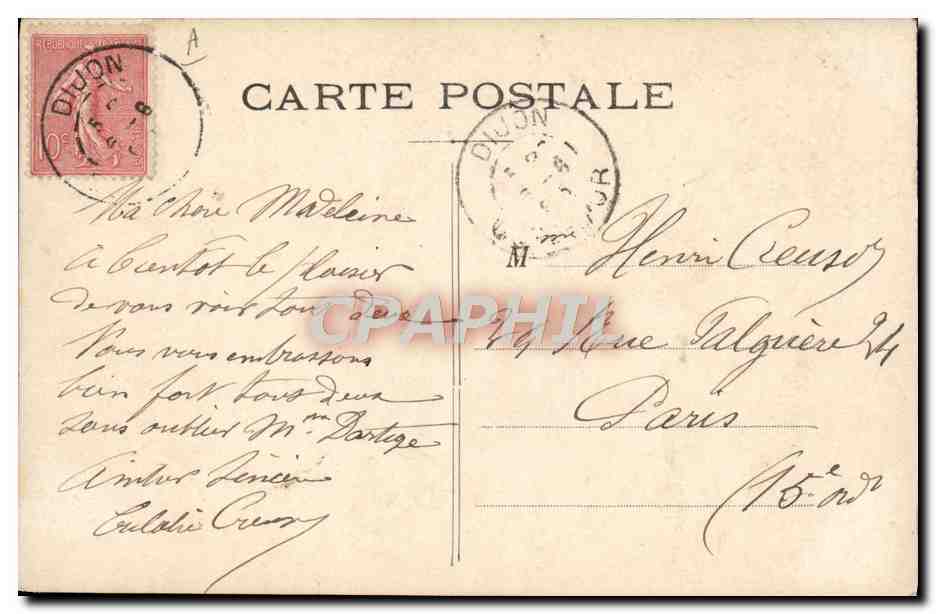 A
REPUBLIQUE
10c
DIJON
CARTE POSTALE
DIJON
Ma chère Madeleine
à bientôt le plaisir
de vous voir tous deux
Nous vous embrassons
bien fort tous deux
sans oublier Mme Dartige
Amitiés
Eulalie
CPAPHIL
M
Henri Creusot
Rue Falguière 24
Paris
(15e ord